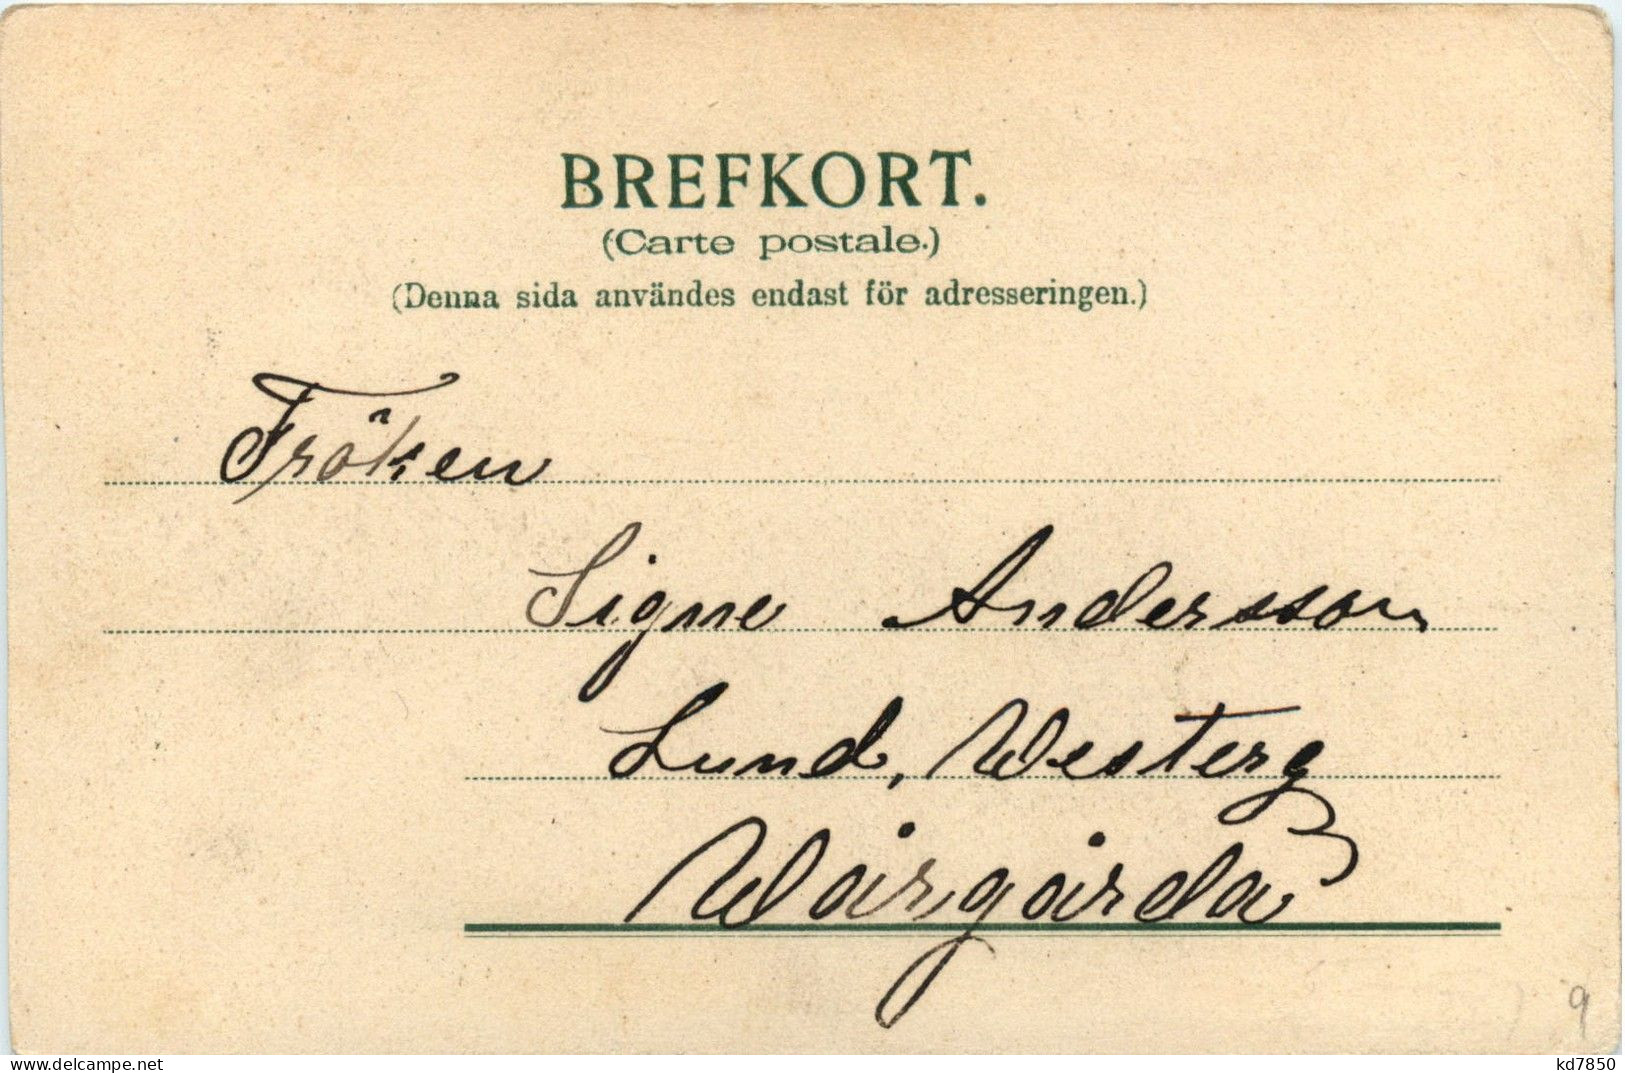 BREFKORT.
(Carte postale.)
(Denna sida användes endast för adresseringen.)
Fröken
Signe Andersson
Lund, Westerg
Wårgårda
9
www.delcampe.net
kd7850